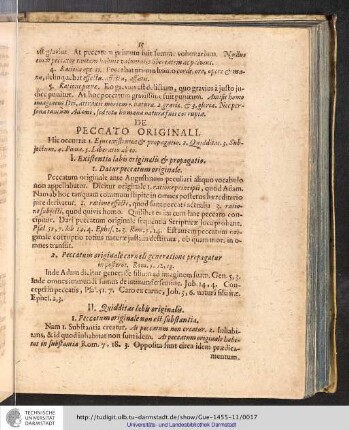 est gravius. At peccatum primum fuit summè voluntarium. Nullus
enim peccator tantum habuit
4. Ratione operis. Peccabat primus homo corde, ore, opere & ma-
nu, delinquebat effectu.
5. Ratione pœnæ. Eo gravius est delictum, quo gravius à justo ju-
dice punitur. At hoc peccatum gravissimè fuit punitum.
imaginem Dei, mortem 1. naturæ. 2. gratiæ. & 3. gloriæ.
Adamus, sed tota humana natura fuit corrupta.
DE
PECCATO ORIGINALI.
Hic occurrit 1. existentia & propagatio. 2. Quidditas. 3. Sub-
jectum. 4. Pœna. 5. Liberatio ab eo.
I. Existentia labis originalis & propagatio.
1. Datur peccatum originale.
Peccatum originale ante Augustinum peculiari aliquo vocabulo
non appellabatur. Dicitur originale 1. ratione principii, quòd Adam.
Nam ab hoc tanquam communi stipite in omnes posteros hæreditario
jure derivatur. 2. ratione effectus, quòd sit peccati actualis. 3. ratio-
ne subjecti, quòd quivis homo. Quilibet enim cum hac peccato con-
cipitur. Dari peccatum originale firmamenta Scripturæ
Psal. 51, 7. Job. 14, 4. Ephes. 2, 3. Rom. 5, 14. Est autem peccatum ori-
ginale corruptio totius naturæ justitiâ destitutæ, ob quam mors in o-
mnes transiit.
2. Peccatum originale carnali generatione propagatur
in posteros, Rom. 5, 12, 13.
Inde Adam dicitur genuisse filium ad imaginem suam, Gen. 5, 3.
Inde omnes immundi sumus de immundo semine, Job. 14, 4. Con-
cepti in peccatis, Ps. 51, 7. Caro ex carne, Joh. 3, 6. naturâ filii iræ,
Ephes. 2, 3.
II. Quidditas labis originalis.
1. Peccatum originale non est substantia.
Nam 1. Substantia creatur. At peccatum non creatur. 2. Inhabi-
tans, & id quod inhabitat non sunt idem. At peccatum originale habi-
tat in substantia Rom. 7, 18. 3. Opposita sunt circa idem prædica-
mentum.
TECHNISCHE
UNIVERSITÄT
DARMSTADT
http://tudigit.ulb.tu-darmstadt.de/show/Gue-1455-11/0017
Universitäts- und Landesbibliothek Darmstadt